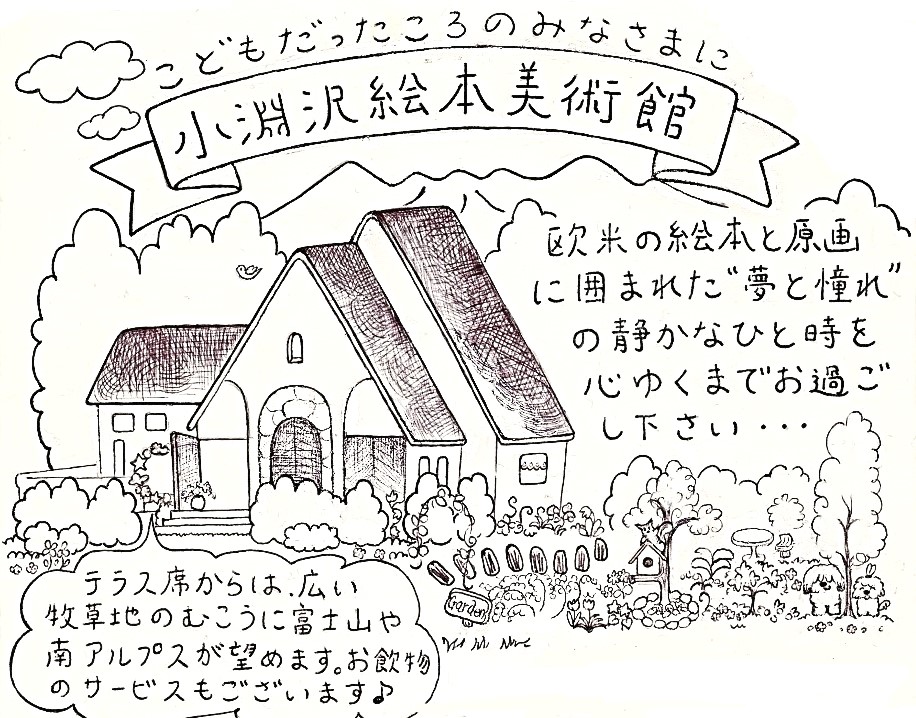 こどもだったころのみなさまに
小淵沢絵本美術館
欧米の絵本と原画
に囲まれた“夢と憧れ”
の静かなひと時を
心ゆくまでお過ご
し下さい・・・
garden
テラス席からは、広い
牧草地のむこうに富士山や
南アルプスが望めます。お飲物
のサービスもございます♪